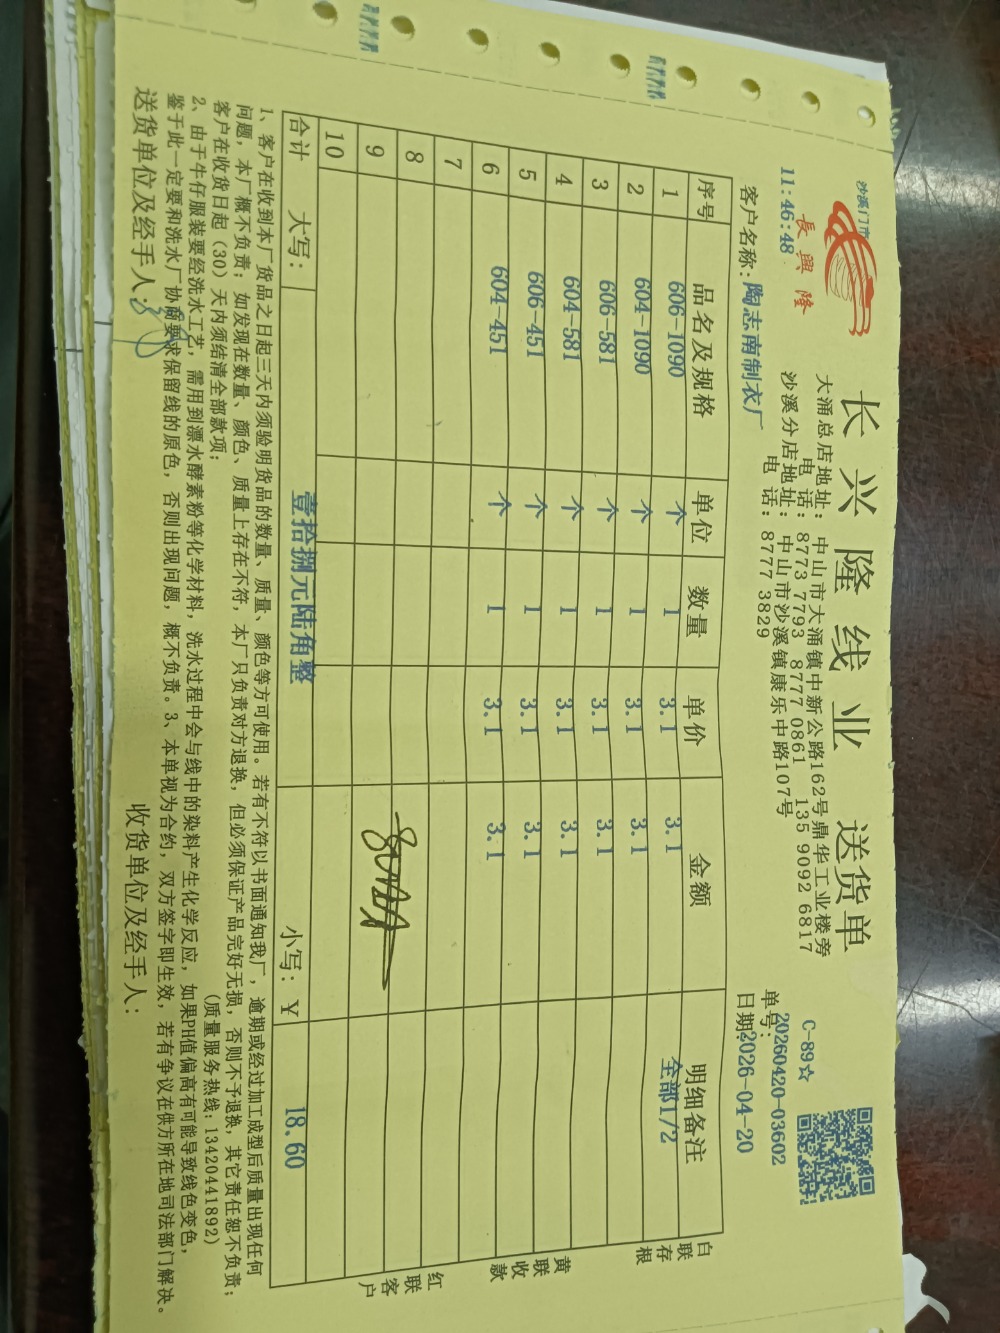 沙溪门市
長興隆
11:46:48
长兴隆线业 送货单
大涌总店地址：中山市大涌镇中新公路162号鼎华工业楼旁
电 话：8773 7793 8777 0861 135 9092 6817
沙溪分店地址：中山市沙溪镇康乐中路107号
电 话：8777 3829
C-89☆
单号：20260420-03602
客户名称：陶志南制衣厂
日期：2026-04-20
序号 品名及规格 单位 数量 单价 金额 明细备注
1 606-1090 个 1 3.1 3.1 全部1/2
2 604-1090 个 1 3.1 3.1
3 606-581 个 1 3.1 3.1
4 604-581 个 1 3.1 3.1
5 606-451 个 1 3.1 3.1
6 604-451 个 1 3.1 3.1
7
8
9
10
合计 大写：壹拾捌元陆角整 小写：¥ 18.60
白联存根
黄联收款
红联客户
1、客户在收到本厂货品之日起三天内须验明货品的数量、质量、颜色等方可使用。若有不符以书面通知我厂，逾期或经过加工成型后质量出现任何
问题，本厂概不负责；如发现在数量、颜色、质量上存在不符，本厂只负责对方退换，但必须保证产品完好无损，否则不予退换，其它责任恕不负责；
客户在收货日起（30）天内须结清全部款项；
(质量服务热线：13420441892)
2、由于牛仔服装要经洗水工艺，需用到漂水酵素粉等化学材料，洗水过程中会与线中的染料产生化学反应，如果PH值偏高有可能导致线色变色，
鉴于此一定要和洗水厂协商要求保留线的原色，否则出现问题，概不负责。3、本单视为合约，双方签字即生效，若有争议在供方所在地司法部门解决。
送货单位及经手人： 收货单位及经手人：